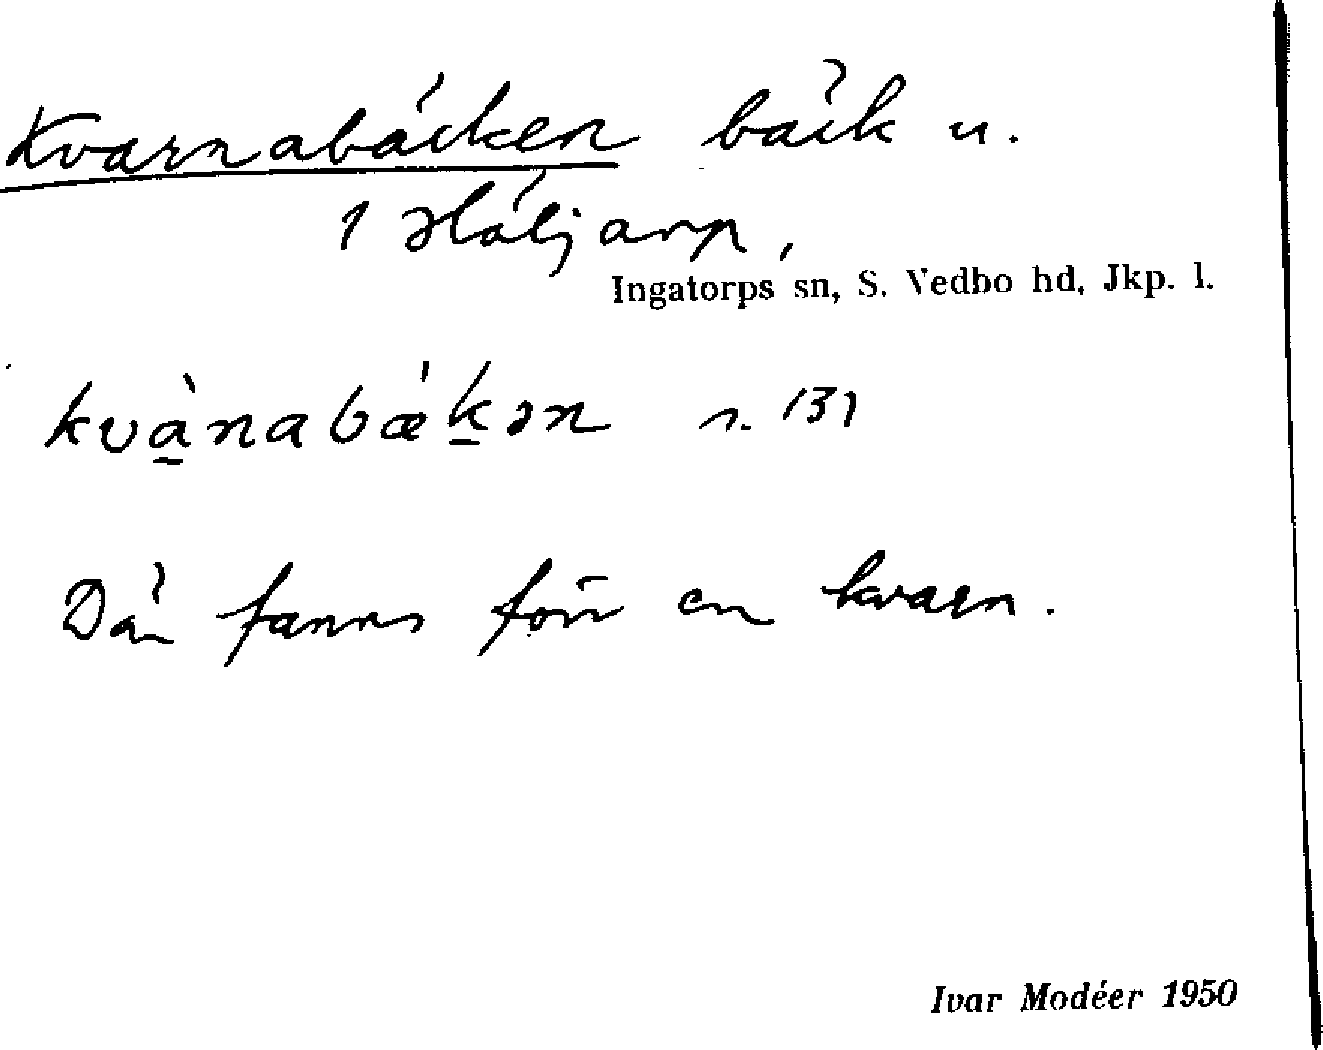 Kvarnabäcken bäck u.
1 Häljarp,
Ingatorps sn, S. Vedbo hd, Jkp. l.
kvànabǽkən s. 131
Där fanns förr en kvarn.
Ivar Modéer 1950